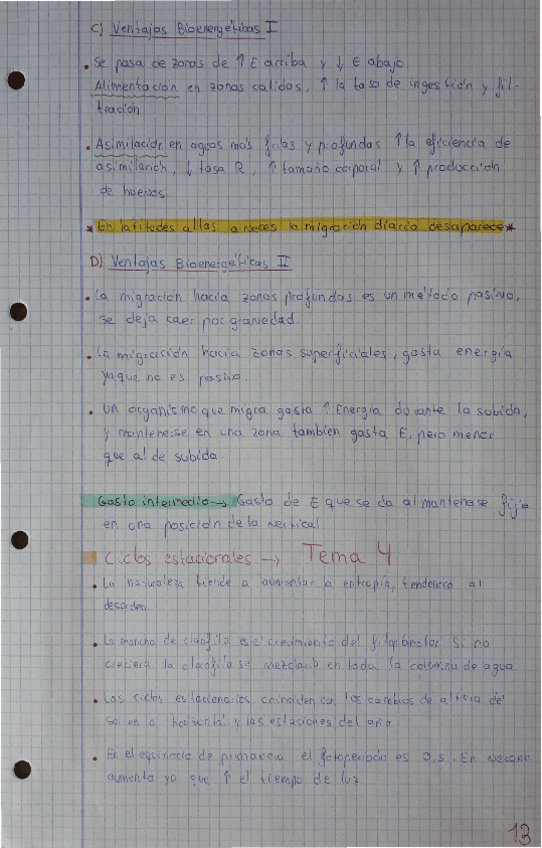 C) Ventajas Bioenergéticas I
• Se pasa de zonas de ↑ E arriba y ↓ E abajo.
Alimentación en zonas calidas, ↑ la tasa de ingestión y fil-
tración
• Asimilación en aguas más frías y profundas ↑ la eficiencia de
asimilación, ↓ tasa R, ↑ tamaño corporal y ↑ producción
de huevos.
* En latitudes altas a veces la migración diaria desaparece *
D) Ventajas Bioenergéticas II
• La migración hacia zonas profundas es un método pasivo,
se deja caer por gravedad.
• La migración hacia zonas superficiales, gasta energía
ya que no es pasivo.
• Un organismo que migra gasta ↑ Energía durante la subida,
y mantenerse en una zona tambien gasta E, pero menor
que al de subida.
Gasto intermedio → Gasto de E que se da al mantenerse fijo
en una posición de la vertical
Ciclos estacionales → Tema 4
• La naturaleza tiende a aumentar la entropía, tendencia al
desorden
• La mancha de clorofila es el crecimiento del fitoplancton. Si no
creciera la clorofila se mezclaría en toda la columna de agua.
• Los ciclos estacionarios coinciden con los cambios de altura del
Sol en el horizontal y las estaciones del año
• En el equinocio de primavera el fotoperiodo es 0,5. En verano
aumenta ya que ↑ el tiempo de luz
13